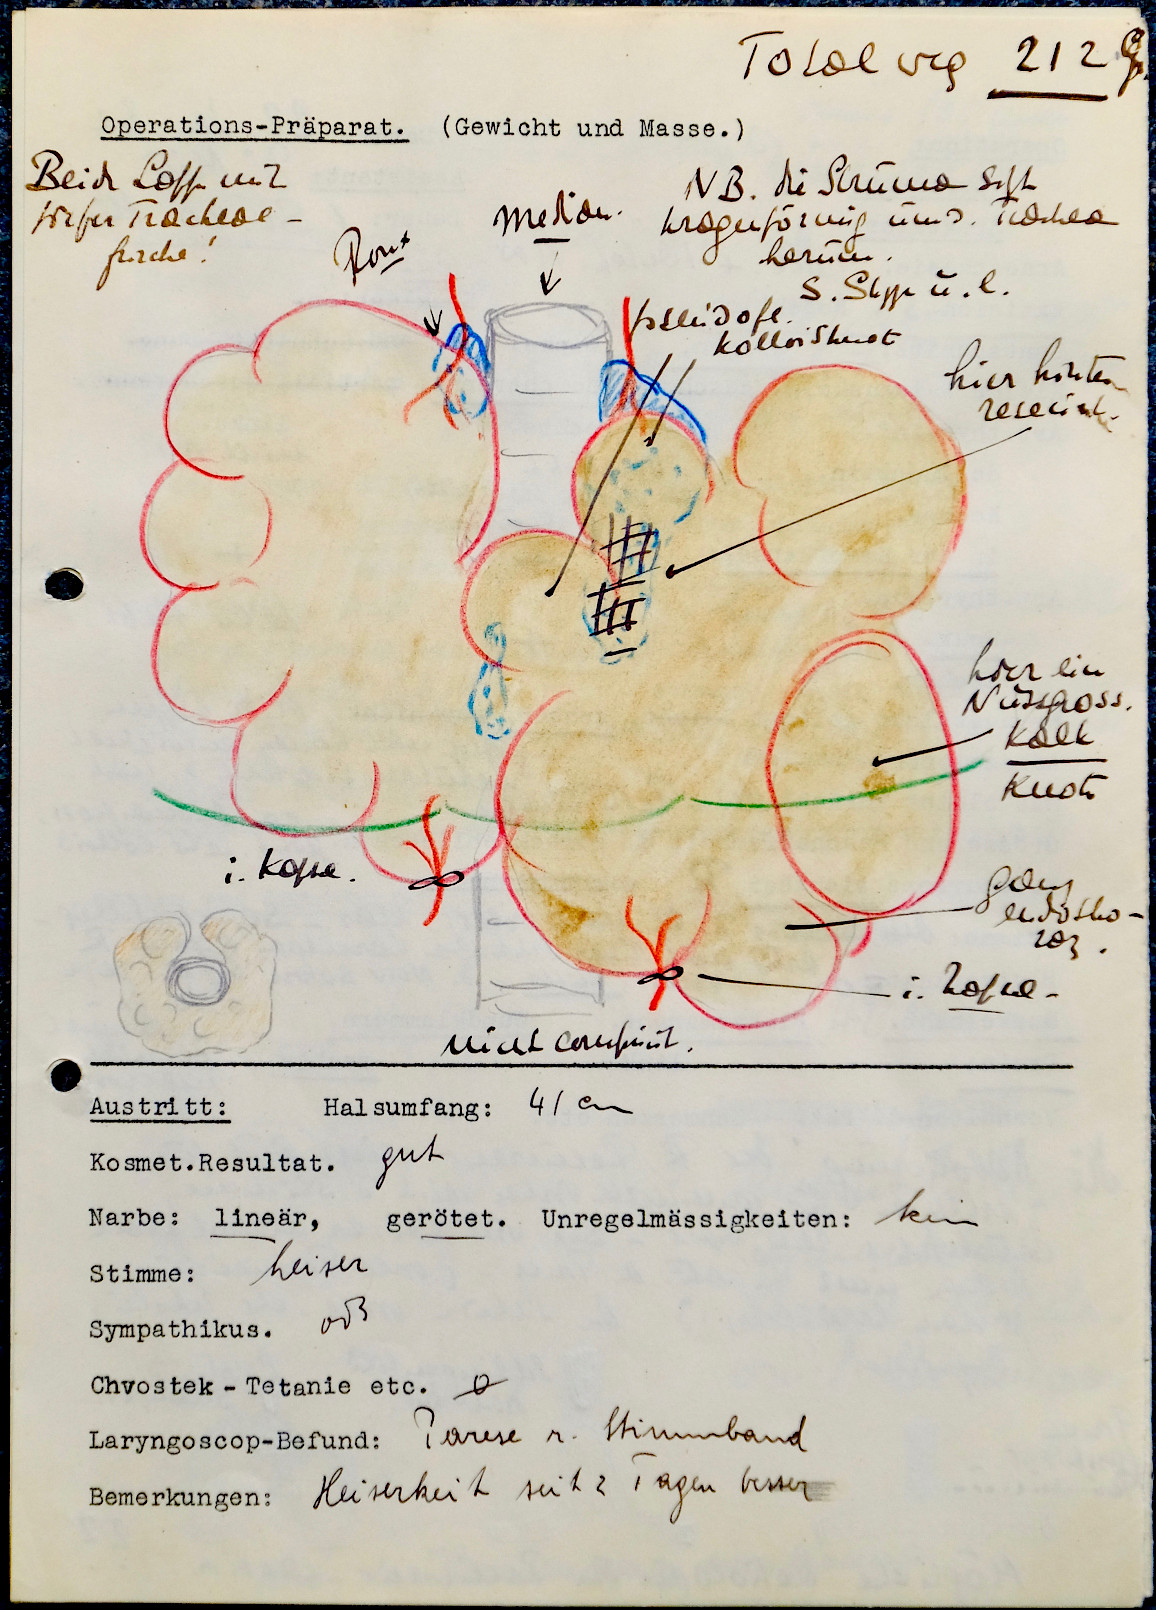 Total weg 212 g.
Operations-Präparat. (Gewicht und Masse.)
Beide Lapp mit
tiefer Tracheal-
furche!
median.
NB. die Struma
kragenförmig um d. Trachea
herum.
s. Skizze u. l.
kolloidknot
hier hinten
reseciert.
hier ein
Nussgross.
Kalk
Knot
ganz
endotho-
raz.
i. Kapsel.
i. Kapsel.
nicht comprimiert.
Austritt: Halsumfang: 41 cm
Kosmet.Resultat. gut
Narbe: lineär, gerötet. Unregelmässigkeiten: kein
Stimme: heiser
Sympathikus. oB
Chvostek - Tetanie etc. 0
Laryngoscop-Befund: Parese r. Stimmband
Bemerkungen: Heiserkeit seit 2 Tagen besser